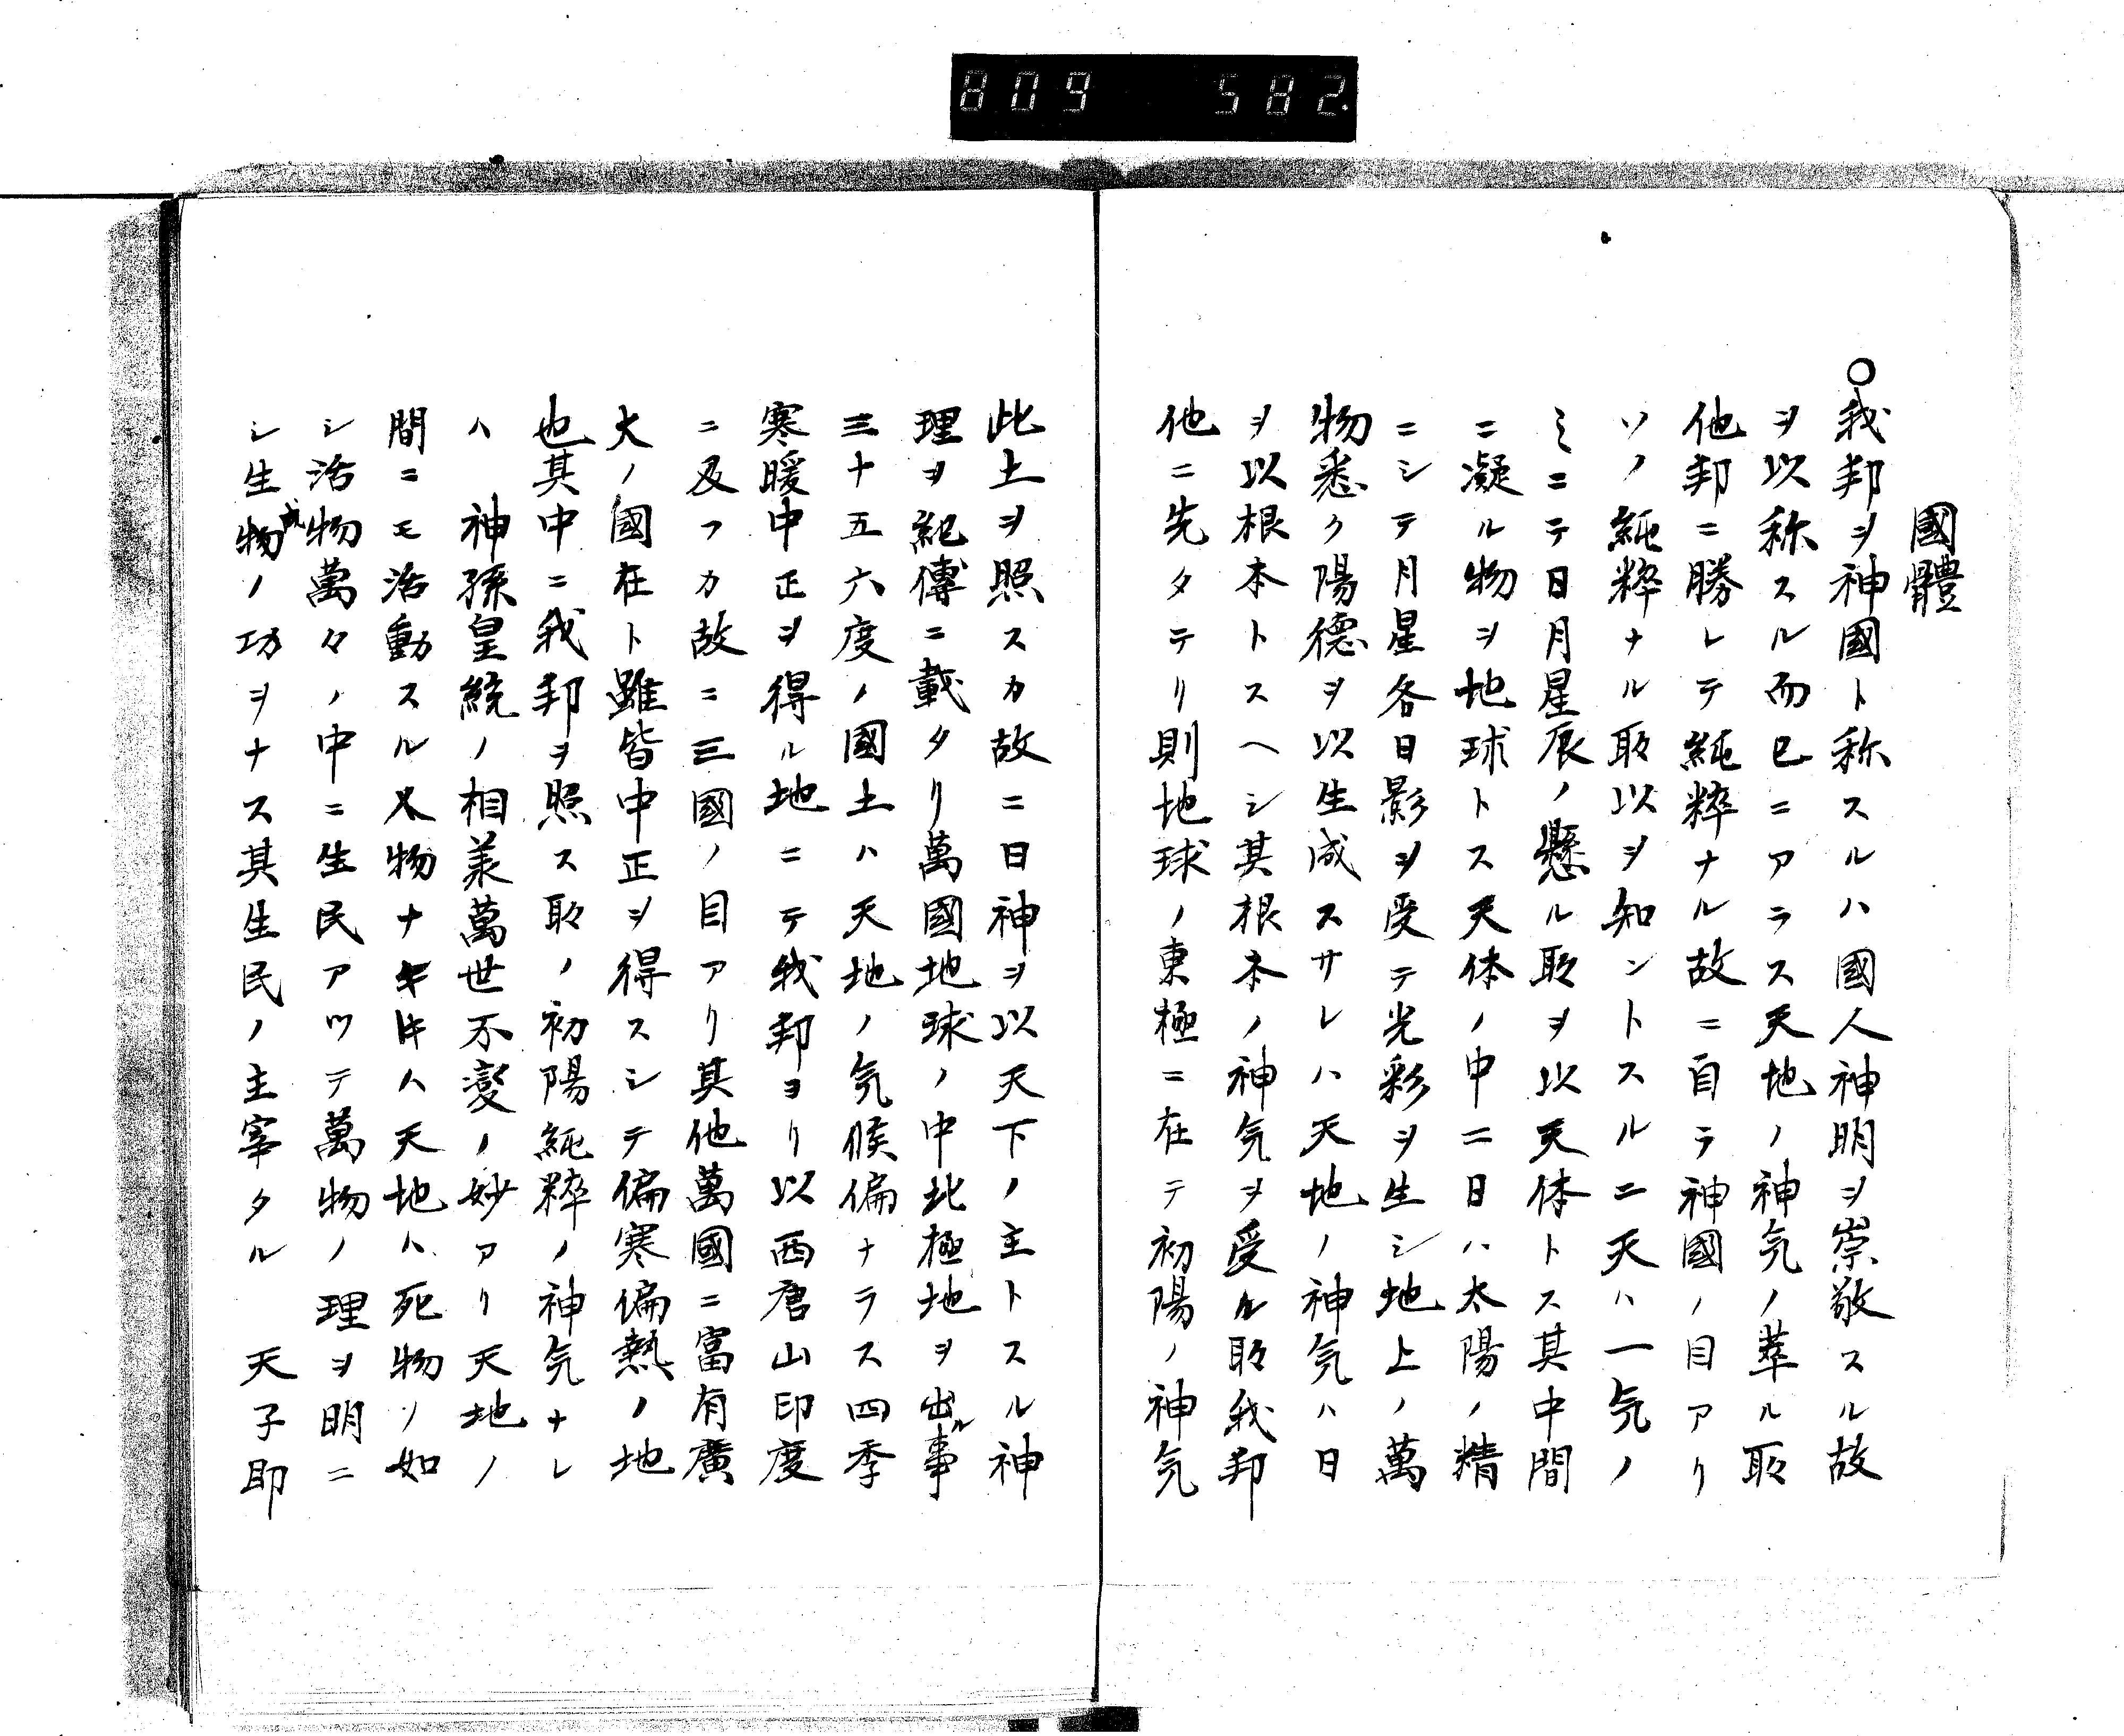 809 582.
國體
○我邦ヲ神國ト称スルハ國人神明ヲ崇敬スル故
ヲ以称スル而已ニアラス天地ノ神気ノ萃ル取
他邦ニ勝レテ純粋ナル故ニ自ラ神國ノ目アリ
ソノ純粋ナル取以ヲ知ントスルニ天ハ一気ノ
ミニテ日月星辰ノ懸ル取ヲ以天体トス其中間
ニ凝ル物ヲ地球トス天体ノ中ニ日ハ太陽ノ精
ニシテ月星各日影ヲ受テ光彩ヲ生シ地上ノ萬
物悉ク陽德ヲ以生成スサレハ天地ノ神気ハ日
ヲ以根本トスヘシ其根本ノ神気ヲ受ル取我邦
他ニ先タテリ則地球ノ東極ニ在テ初陽ノ神気
此土ヲ照スカ故ニ日神ヲ以天下ノ主トスル神
理ヲ紀傳ニ載タリ萬國地球ノ中北極地ヲ出ル事
三十五六度ノ國土ハ天地ノ気候偏ナラス四季
寒暖中正ヲ得ル地ニテ我邦ヨリ以西唐山印度
ニ及フカ故ニ三國ノ目アリ其他萬國ニ富有廣
大ノ國在ト雖皆中正ヲ得スシテ偏寒偏熱ノ地
也其中ニ我邦ヲ照ス取ノ初陽純粋ノ神気ナレ
ハ 神孫皇統ノ相義萬世不變ノ妙アリ天地ノ
間ニモ活動スル物ナキキハ天地ハ死物ノ如
シ活物萬々ノ中ニ生民アツテ萬物ノ理ヲ明ニ
シ生物ノ功ヲナス其生民ノ主宰タル 天子即